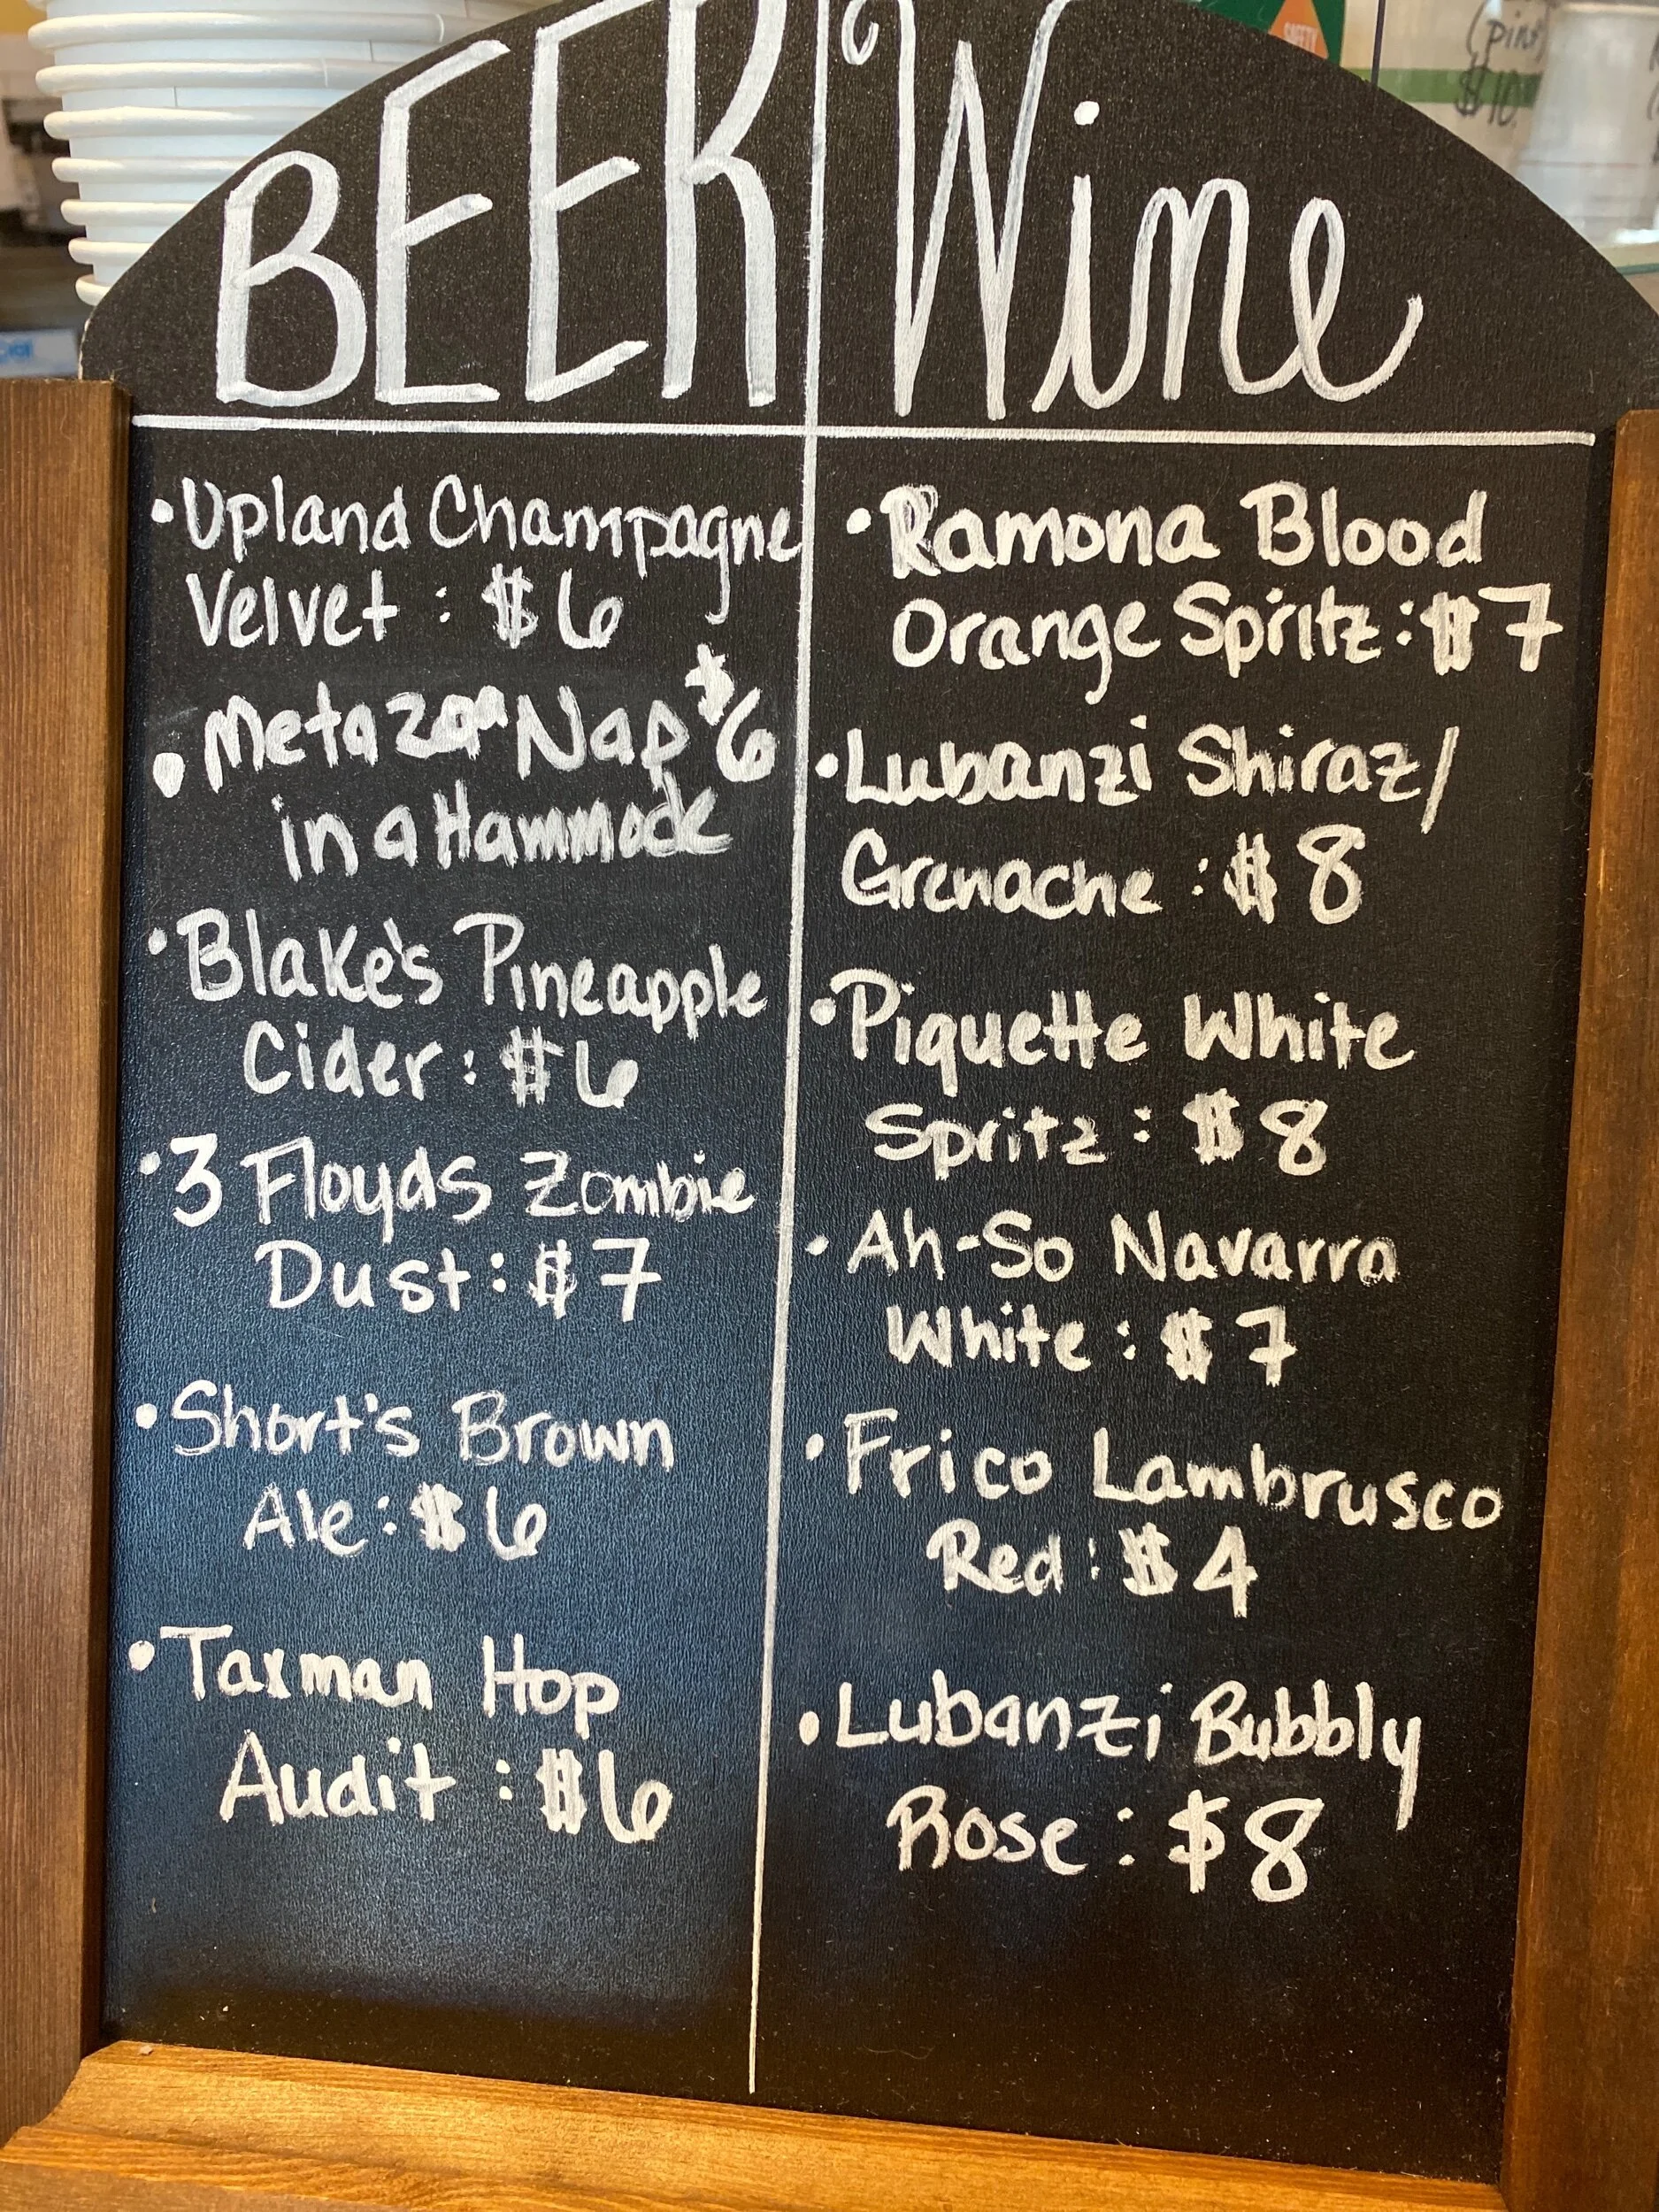 BEER
Wine
• Upland Champagne
Velvet : $6
• Metazoa Nap $6
in a Hammock
• Blake's Pineapple
Cider : $6
• 3 Floyds Zombie
Dust : $7
• Short's Brown
Ale : $6
• Taxman Hop
Audit : $6
• Ramona Blood
Orange Spritz : $7
• Lubanzi Shiraz/
Grenache : $8
• Piquette White
Spritz : $8
• Ah-So Navarra
White : $7
• Frico Lambrusco
Red : $4
• Lubanzi Bubbly
Rose : $8
SAFETY
$10.